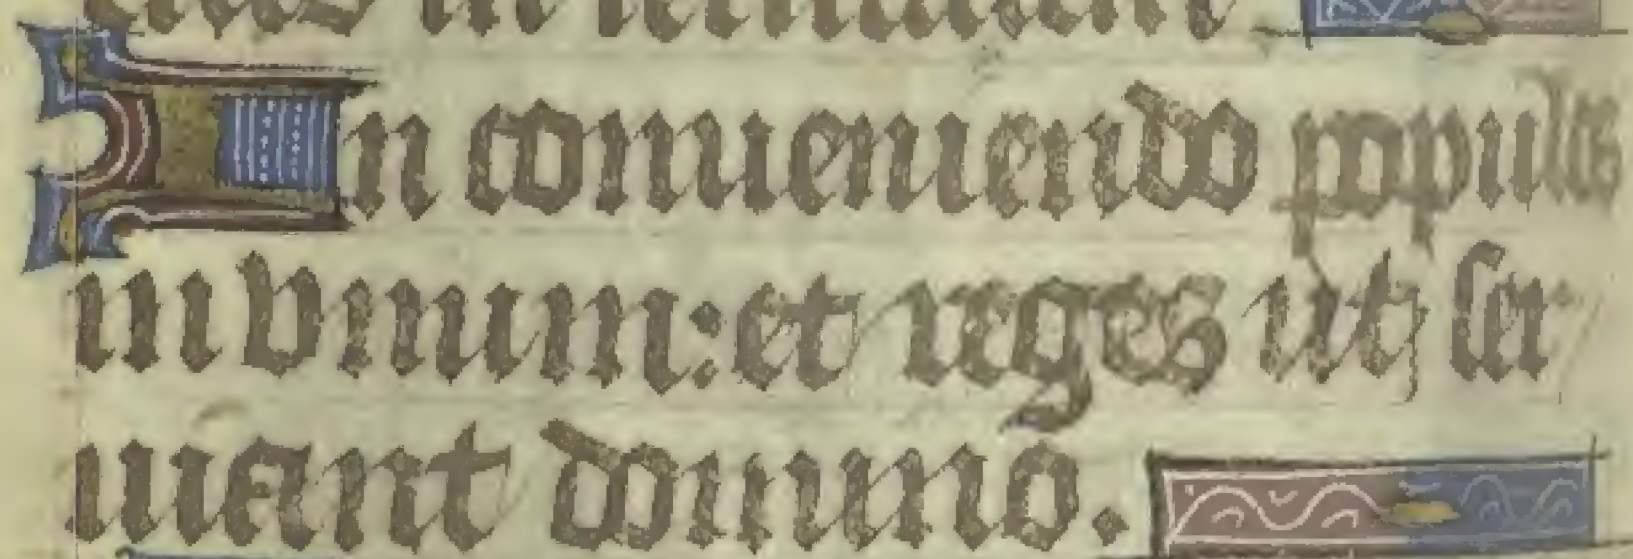 In conueniendo populos
in vnum: et reges ut ser
uiant domino.